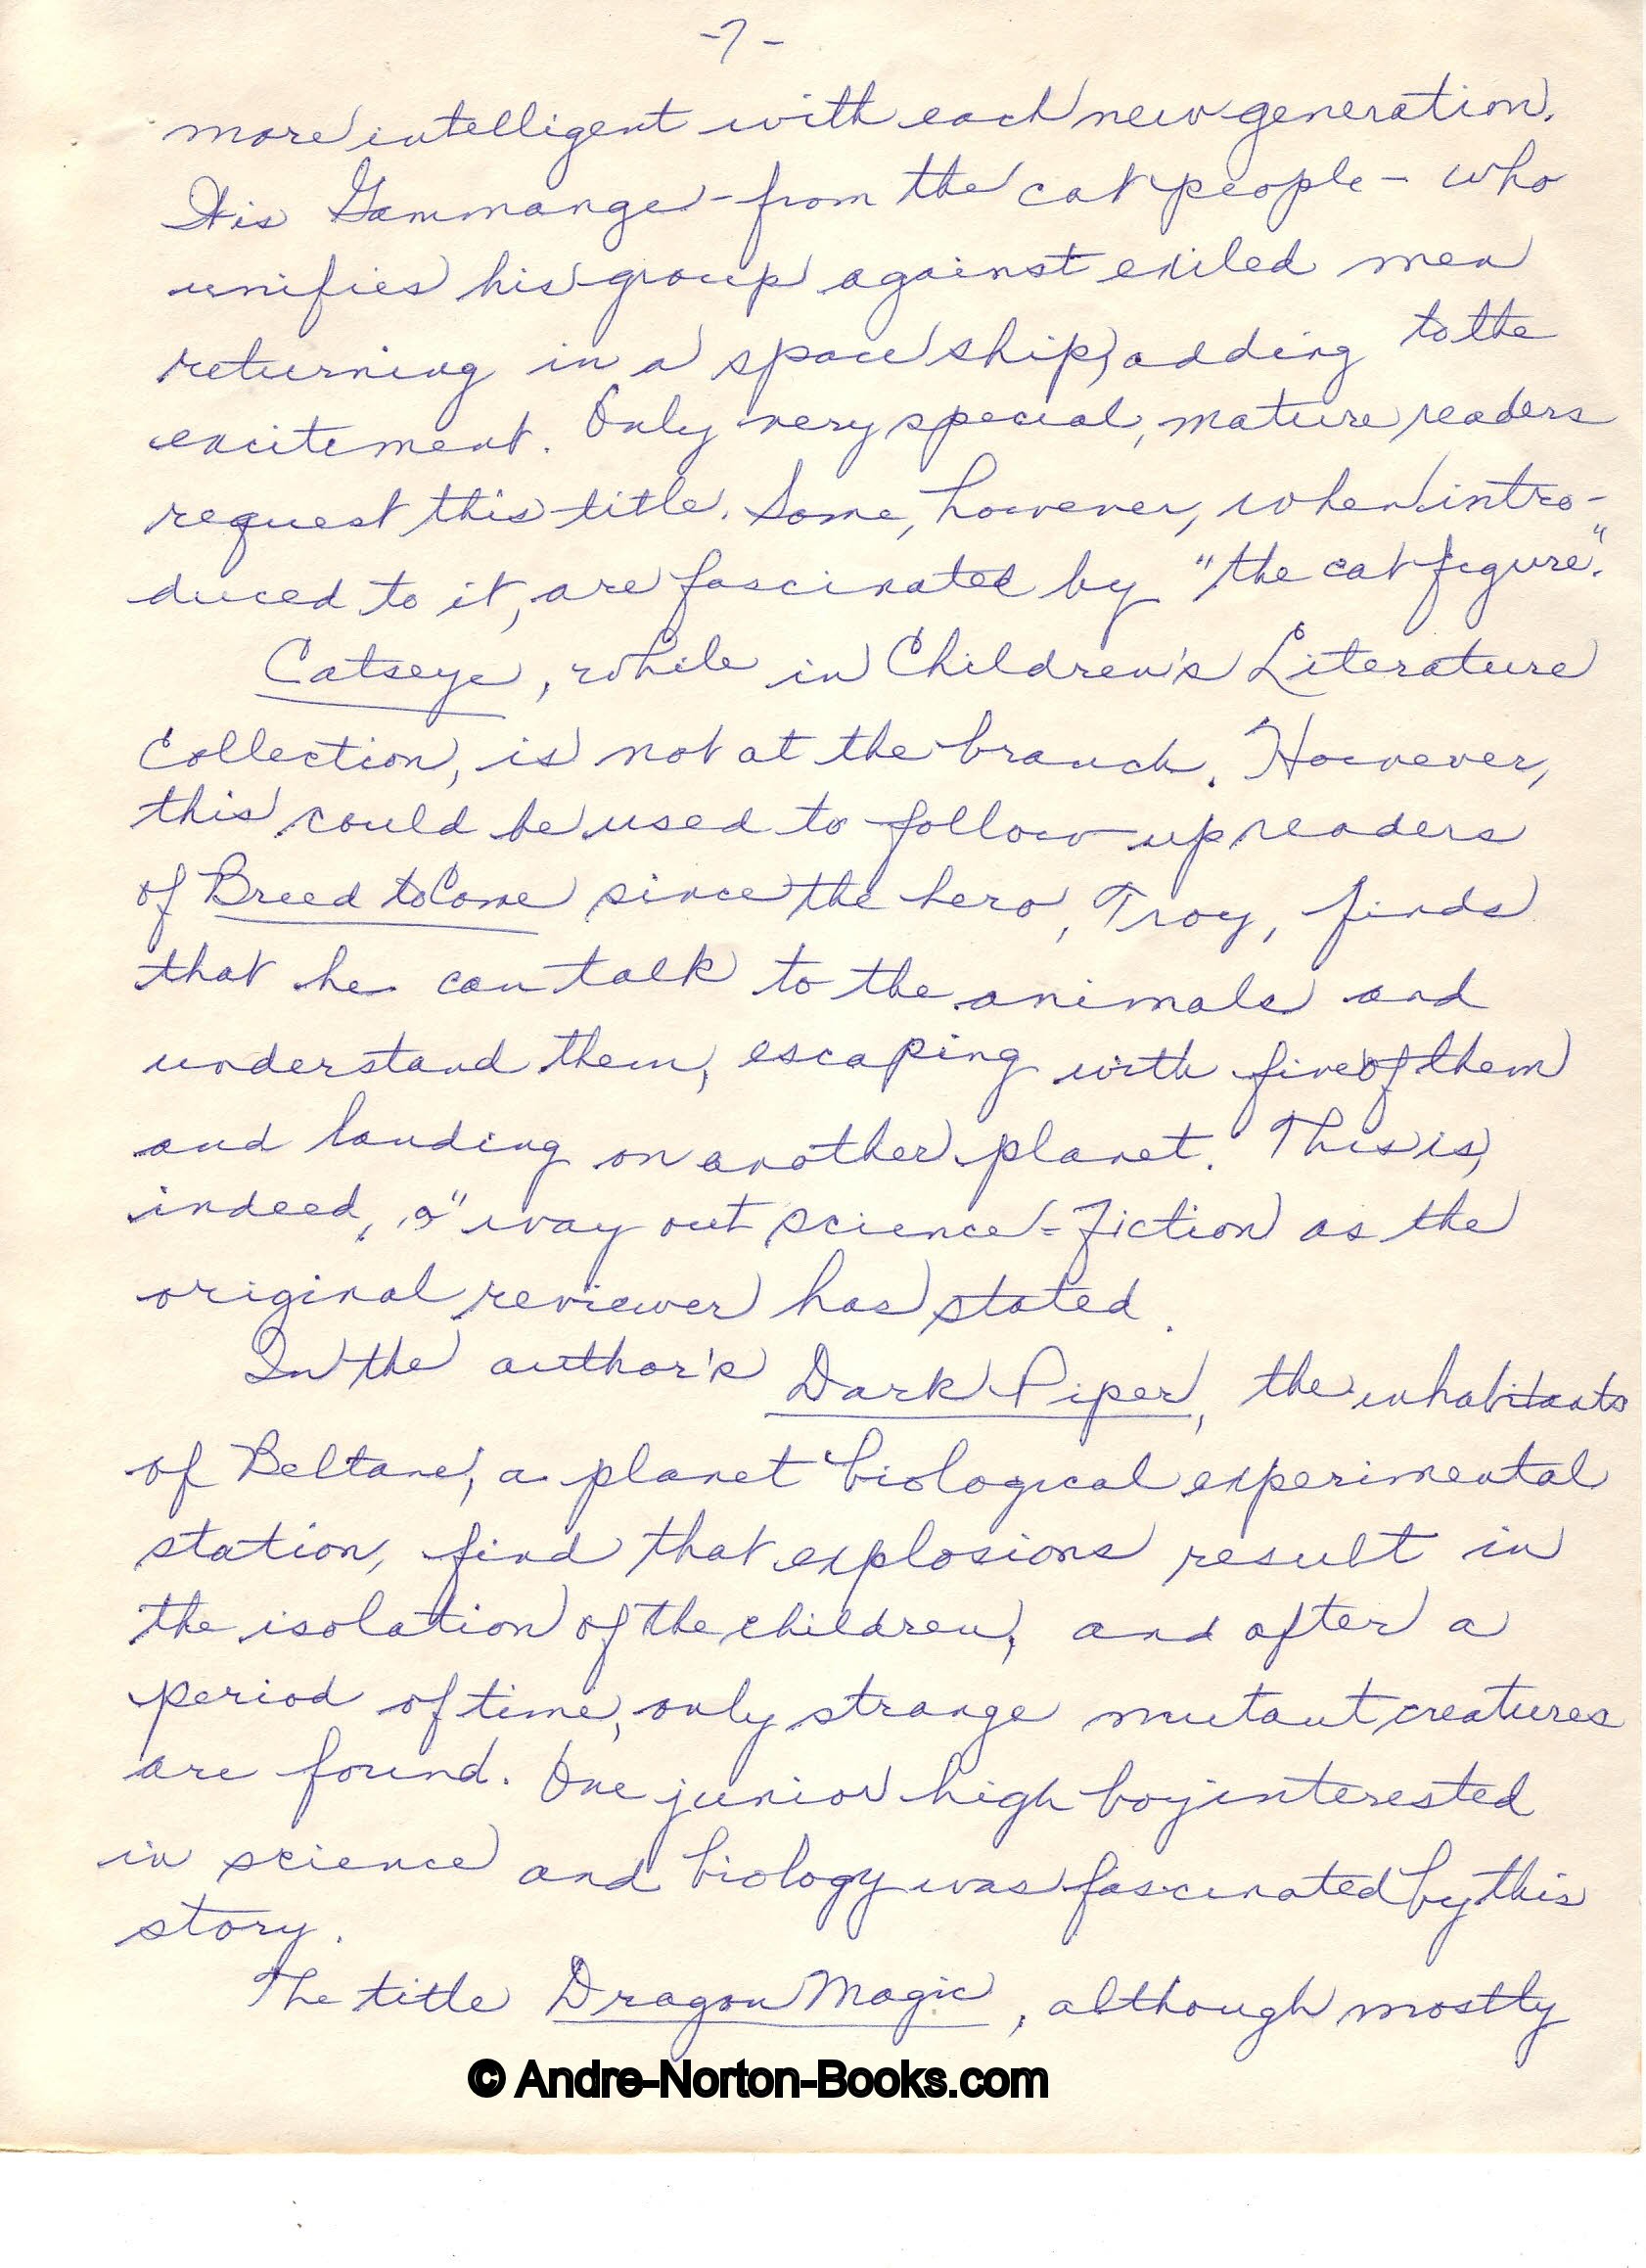 -7-
more intelligent with each new generation.
It is Gammange - from the cat people - who
unifies his group against exiled men
returning in a space ship, adding to the
excitement. Only very special, mature readers
request this title. Some, however, when intro-
duced to it, are fascinated by "the cat figure."
Catseye, while in Children's Literature
Collection, is not at the branch. However,
this could be used to follow up readers
of Breed to Come since the hero, Troy, finds
that he can talk to the animals and
understand them, escaping with five of them
and landing on another planet. This is,
indeed, a "way out science-fiction as the
original reviewer has stated.
In the author's Dark Piper, the inhabitants
of Beltane, a planet biological experimental
station, find that explosions result in
the isolation of the children, and after a
period of time, only strange mutant creatures
are found. One junior high boy interested
in science and biology was fascinated by this
story.
The title Dragon Magic, although mostly
© Andre-Norton-Books.com